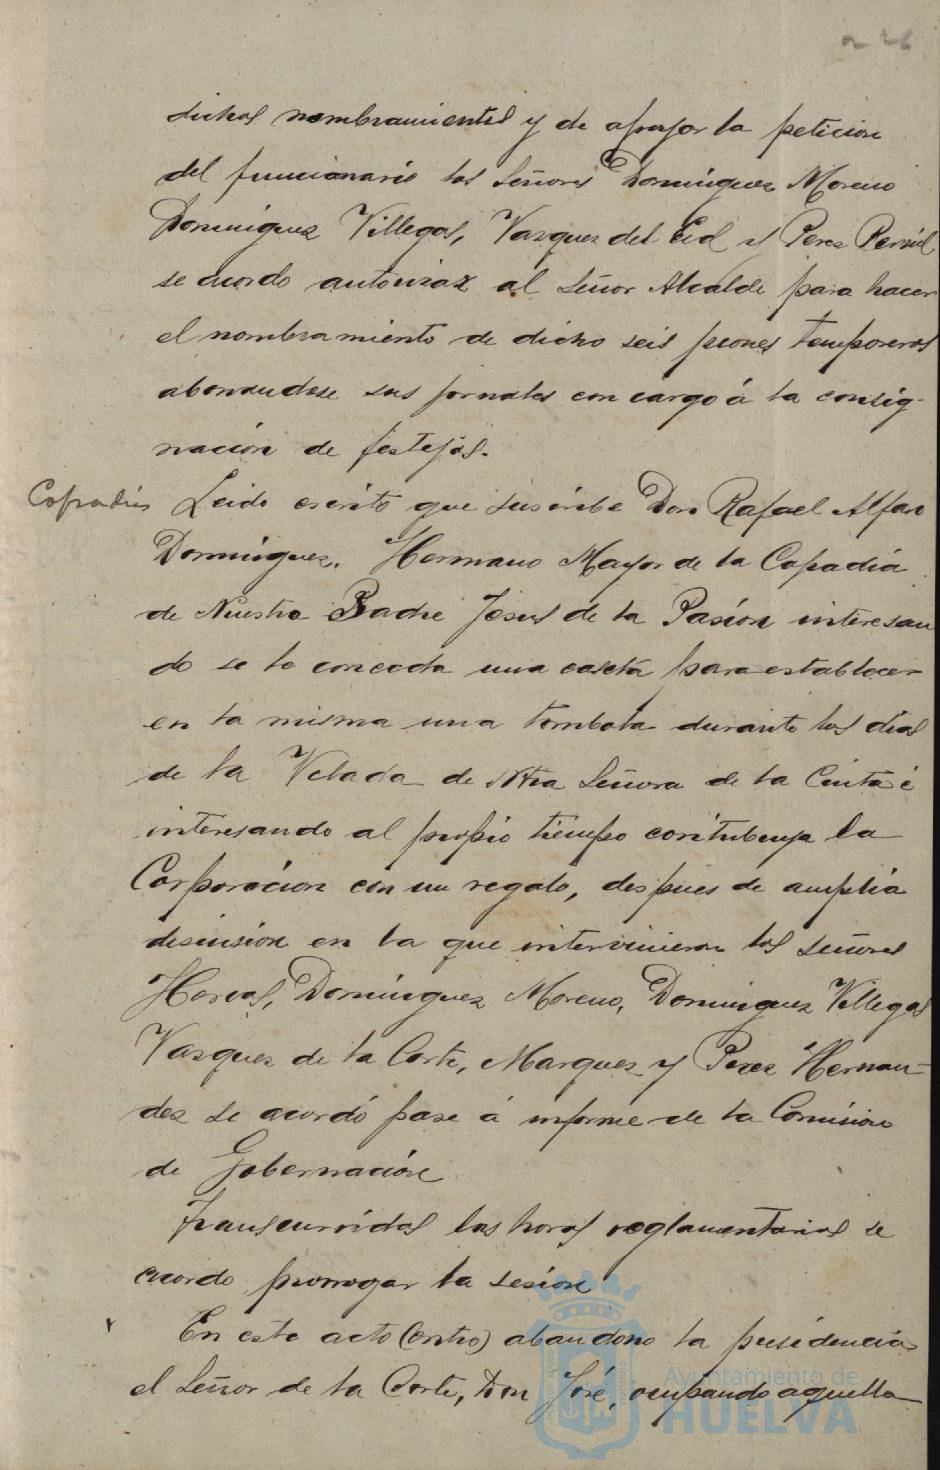 dichos nombramientos y de apoyar la peticion
del funcionario los Señores Dominguez Moreno
Dominguez Villegas, Vazquez del Cid y Perez
se acordo autorizar al Señor Alcalde para hacer
el nombramiento de dicho seis peones temporeros
abonandose sus jornales con cargo á la consig-
nación de festejos.
Cofradias
Leido escrito que suscribe Don Rafael Alfaro
Dominguez, Hermano Mayor de la Cofadia
de Nuestro Padre Jesus de la Pasion interesan
do se le conceda una caseta para establecer
en la misma una tombola durante los dias
de la Velada de Ntra Señora de la Cinta é
interesando al propio tiempo contribuya la
Corporacion con un regalo, despues de amplia
discusion en la que intervinieron los señores
Hervas, Dominguez Moreno, Dominguez Villegas
Vazquez de la Corte, Marquez y Perez Hernan-
dez se acordó pase á informe de la Comision
de Gobernación
Transcurridas las horas reglamentarias se
acordo prorrogar la sesion
En este acto (entro) abandono la presidencia
el Señor de la Corte, Don José, ocupando aquella
Ayuntamiento de
HUELVA